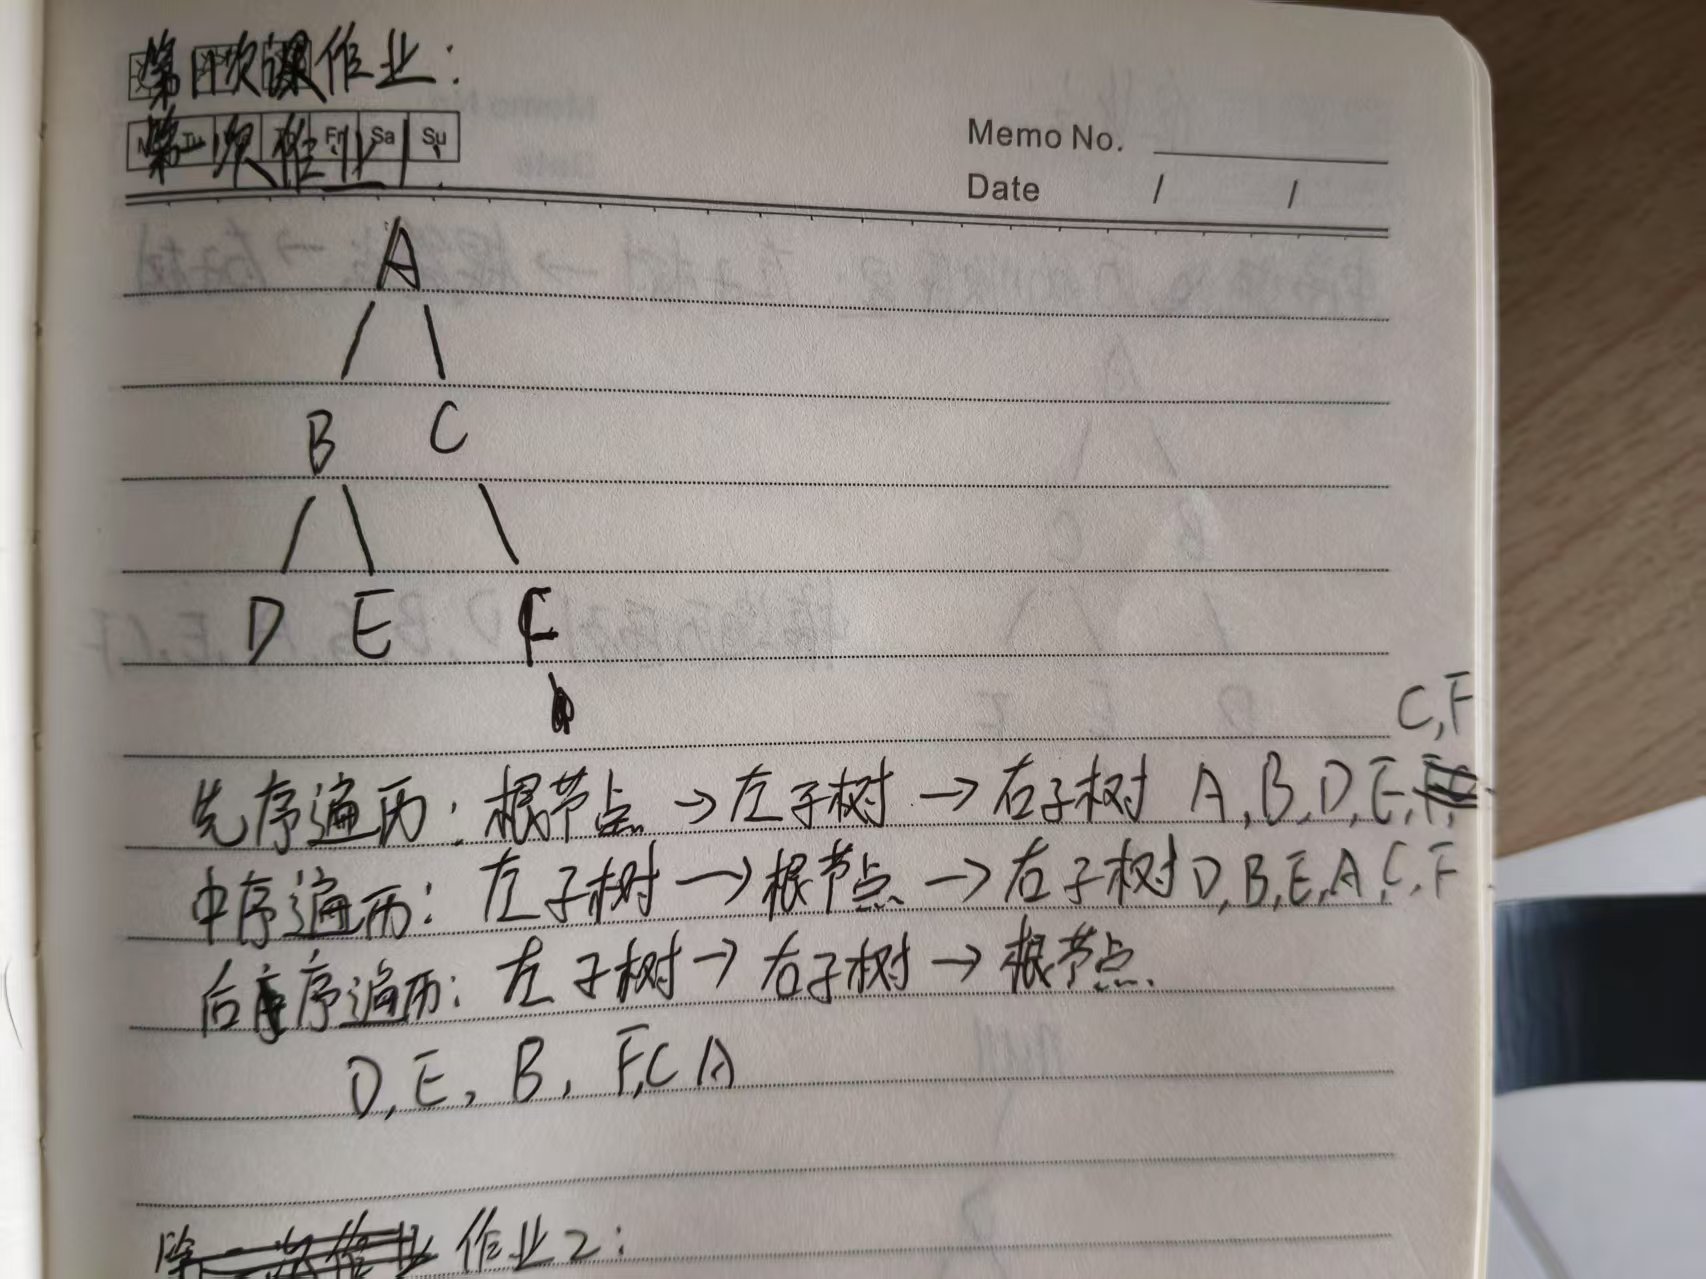 作业:
Fr Sa Su
Memo No.
Date / /
A
B C
D E F
C,F
先序遍历: 根节点 → 左子树 → 右子树 A,B,D,E,
中序遍历: 左子树 → 根节点 → 右子树 D,B,E,A,C,F
后序遍历: 左子树 → 右子树 → 根节点.
D,E,B,F,C A
作业2: